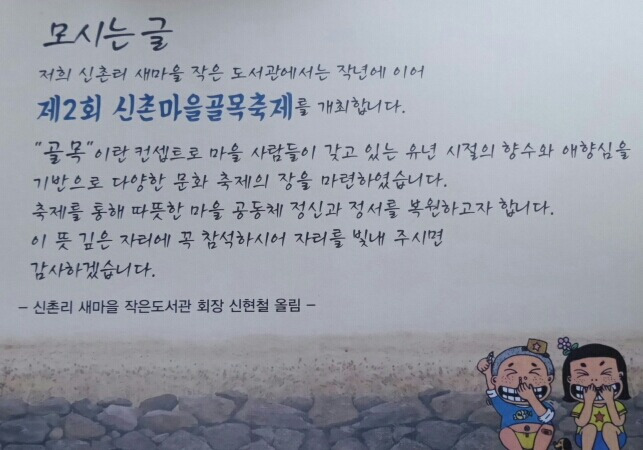 모시는 글
저희 신촌리 새마을 작은 도서관에서는 작년에 이어
제2회 신촌마을골목축제를 개최합니다.
"골목"이란 컨셉트로 마을 사람들이 갖고 있는 유년 시절의 향수와 애향심을
기반으로 다양한 문화 축제의 장을 마련하였습니다.
축제를 통해 따뜻한 마을 공동체 정신과 정서를 복원하고자 합니다.
이 뜻 깊은 자리에 꼭 참석하시어 자리를 빛내 주시면
감사하겠습니다.
- 신촌리 새마을 작은도서관 회장 신현철 올림 -